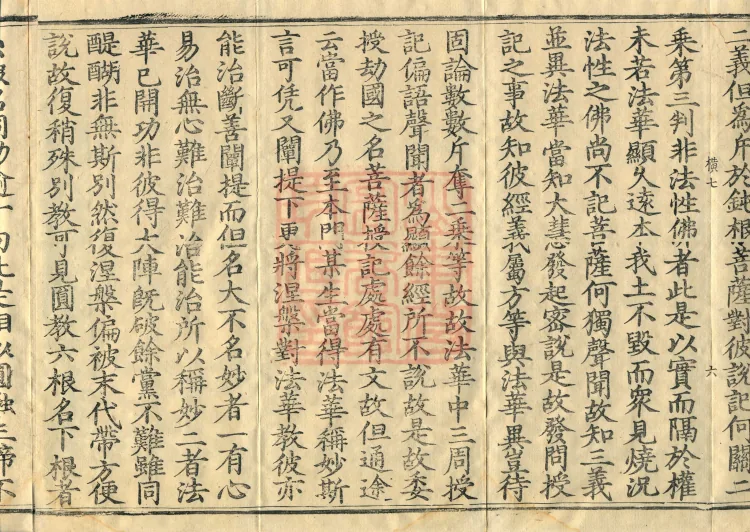 二義但為斥於鈍根菩薩對彼說記何關二
橫七 六
乘第三判非法性佛者此是以實而隔於權
未若法華顯久遠本我土不毀而眾見燒況
法性之佛尚不記菩薩何獨聲聞故知三義
並異法華當知大慧發起密說是故發問授
記之事故知彼經義屬方等與法華異豈待
固論數數斤奪二乘等故故法華中三周授
記偏語聲聞者為顯餘經所不說故是故委
授劫國之名菩薩授記處處有文故但通途
云當作佛乃至本門某生當得法華稱妙斯
言可凭又闡提下更將涅槃對法華教彼亦
能治斷善闡提而但名大不名妙者一有心
易治無心難治難治能治所以稱妙二者法
華已開功非彼得大陣既破餘黨不難雖同
醍醐非無斯別然復涅槃偏被末代帶方便
說故復稍殊別教可見圓教六根名下根者